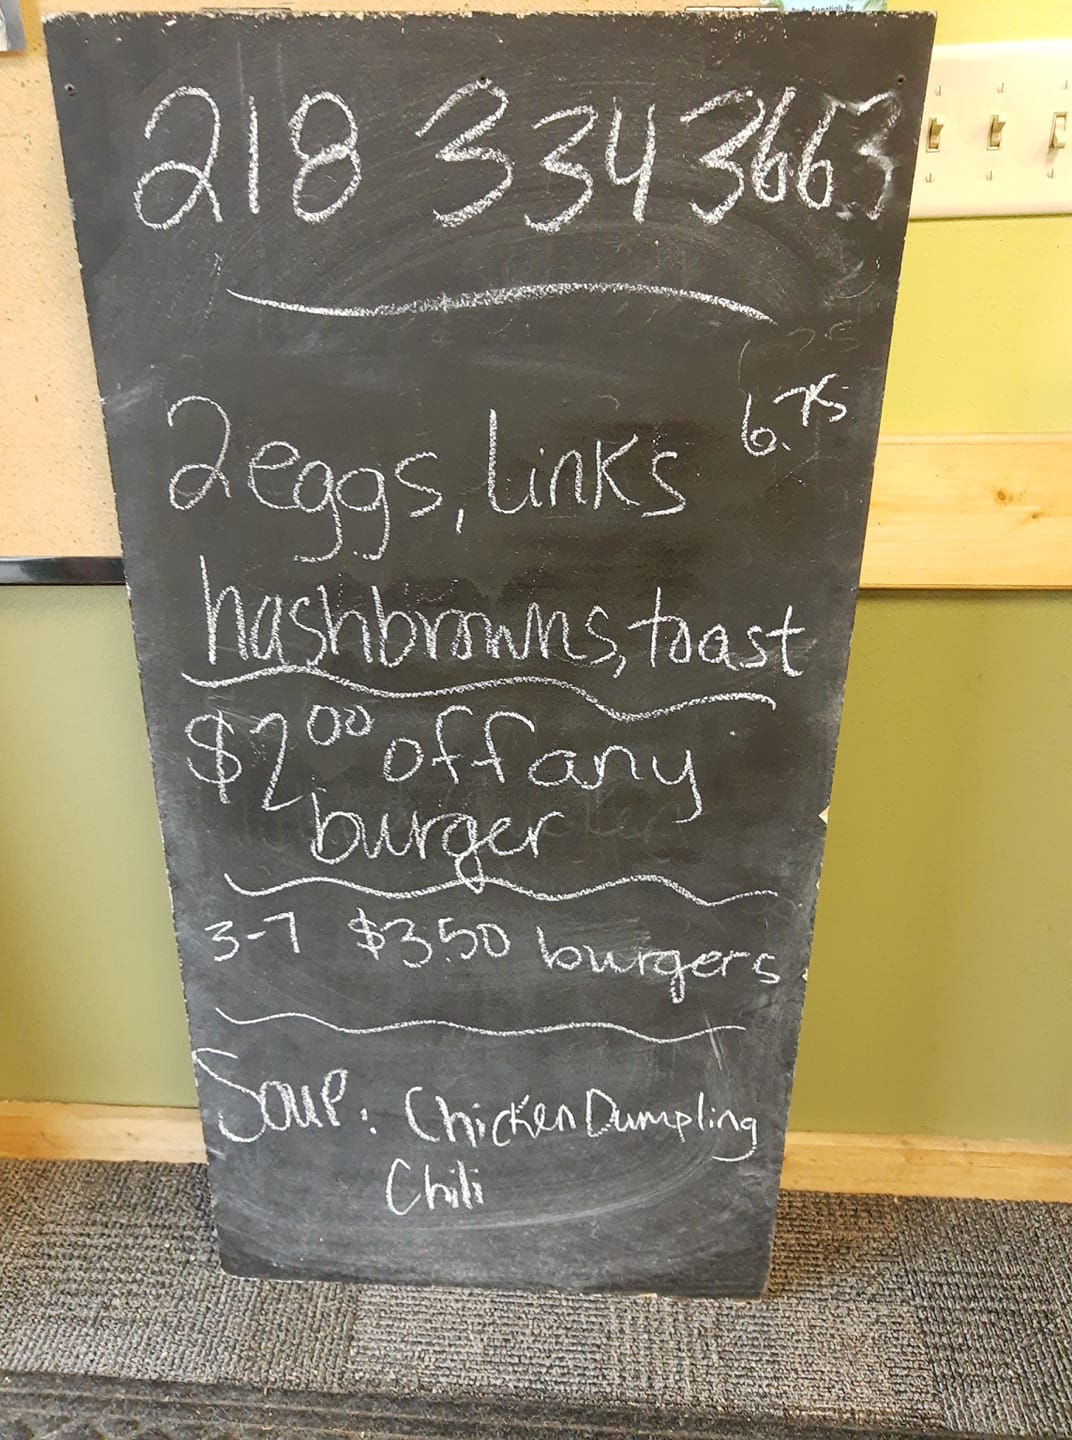 218 334 3663
6.75
2 eggs, links
hashbrowns, toast
$2.00 off any
burger
3-7 $3.50 burgers
Soup: Chicken Dumpling
Chili